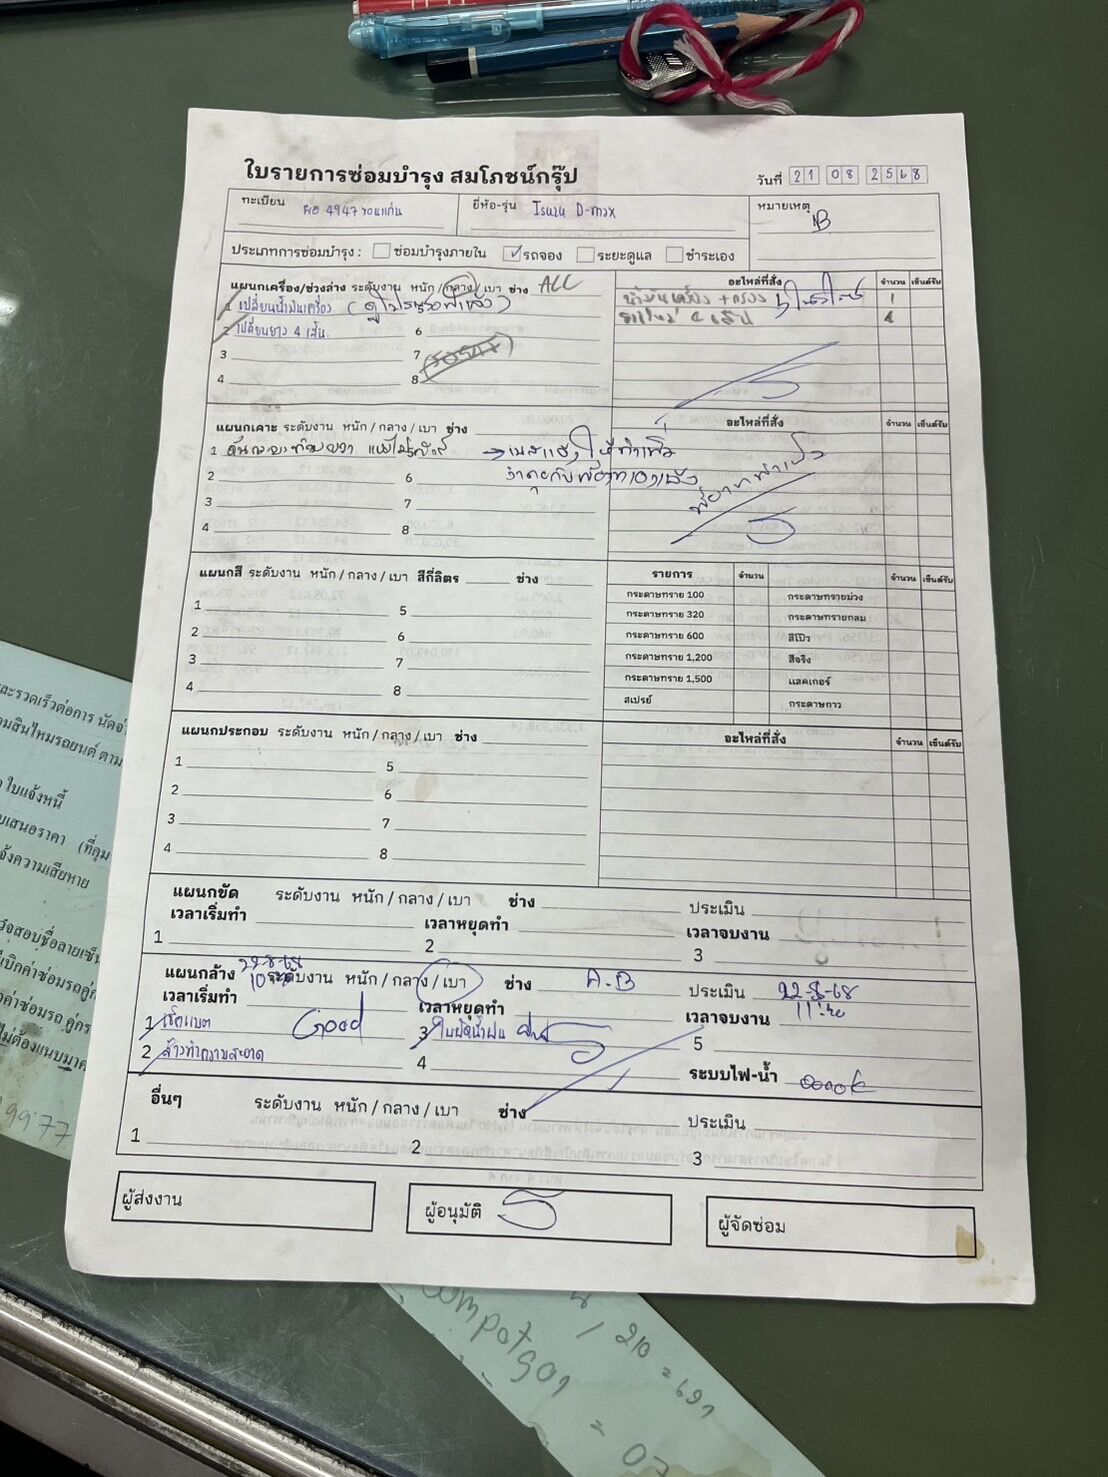 ใบรายการซ่อมบำรุง สมโภชน์กรุ๊ป
วันที่ 21 08 2568
ทะเบียน 4947 ขอนแก่น
ยี่ห้อ-รุ่น Isuzu D-max
หมายเหตุ
B
ประเภทการซ่อมบำรุง : ซ่อมบำรุงภายใน ✓ รถจอง ระยะดูแล ชำระเอง
แผนกเครื่อง/ช่วงล่าง ระดับงาน หนัก / กลาง / เบา ช่าง ALL
อะไหล่ที่สั่ง จำนวน เซ็นต์รับ
1 เปลี่ยนน้ำมันเครื่อง
น้ำมันเครื่อง + กรอง 1
2 เปลี่ยนยาง 4 เส้น.
6
ยางใหม่ 4 เส้น 4
3
7
4
8
แผนกเคาะ ระดับงาน หนัก / กลาง / เบา ช่าง
อะไหล่ที่สั่ง จำนวน เซ็นต์รับ
1
2
6
3
7
4
8
แผนกสี ระดับงาน หนัก / กลาง / เบา สีกี่ลิตร ช่าง
รายการ จำนวน จำนวน เซ็นต์รับ
1
5
2
6
3
7
4
8
กระดาษทราย 100 กระดาษทรายม่วง
กระดาษทราย 320 กระดาษทรายกลม
กระดาษทราย 600 สีโป๊ว
กระดาษทราย 1,200 สีจริง
กระดาษทราย 1,500 แลคเกอร์
สเปรย์ กระดาษกาว
แผนกประกอบ ระดับงาน หนัก / กลาง / เบา ช่าง
อะไหล่ที่สั่ง จำนวน เซ็นต์รับ
1
5
2
6
3
7
4
8
แผนกขัด ระดับงาน หนัก / กลาง / เบา ช่าง ประเมิน
เวลาเริ่มทำ เวลาหยุดทำ เวลาจบงาน
1
2
3
แผนกล้าง 22-8-68 ระดับงาน หนัก / กลาง / เบา ช่าง A.B ประเมิน 22-8-68
เวลาเริ่มทำ เวลาหยุดทำ เวลาจบงาน
1 เช็คแบต Good
3 ใบปัดน้ำฝน
5
2 ล้างทำความสะอาด
4
ระบบไฟ-น้ำ
อื่นๆ ระดับงาน หนัก / กลาง / เบา ช่าง ประเมิน
1
2
3
ผู้ส่งงาน
ผู้อนุมัติ
ผู้จัดซ่อม
และรวดเร็วต่อการ นัด
ใบแจ้งหนี้
เสนอราคา
ความเสียหาย
ไม่ต้องแนบมา
9977
210 = 691